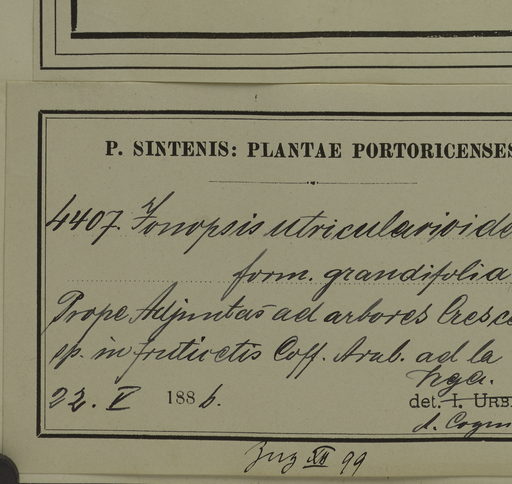 P. SINTENIS: PLANTAE PORTORICENSES
4407. Ionopsis utricularioide
form. grandifolia
Prope Adjuntas ad arbores Cresce
sp. in fruticetis Coff. Arab. ad la
22. V 1886.
det. I. URB
d. Cogn
XII 99